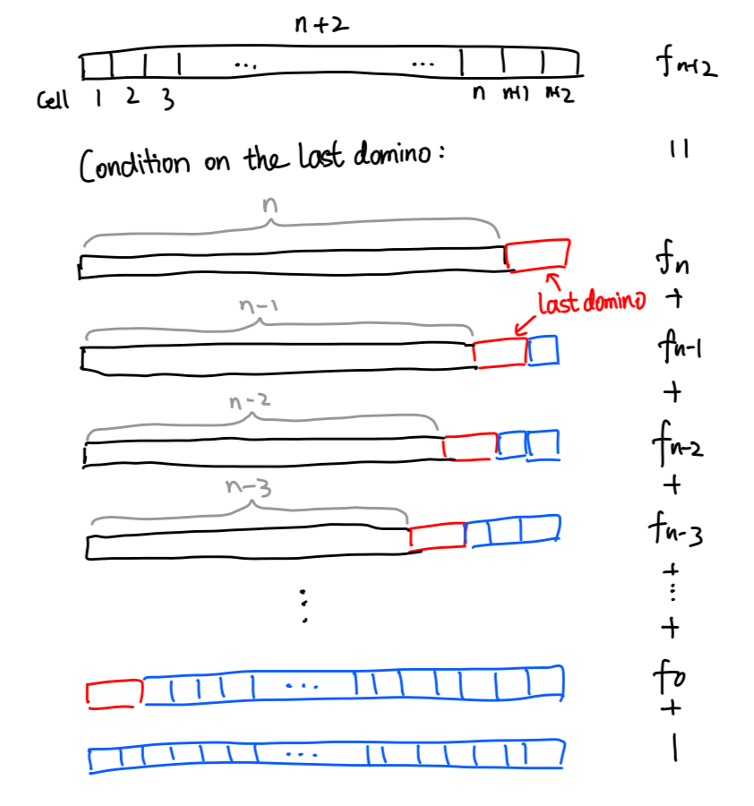 n+2
... ... f_{n+2}
Cell 1 2 3 n n+1 n+2
Condition on the last domino: =
n
f_n
last domino +
n-1
f_{n-1}
+
n-2
f_{n-2}
+
n-3
f_{n-3}
+
⋮ ⋮
+
... f_0
+
... 1